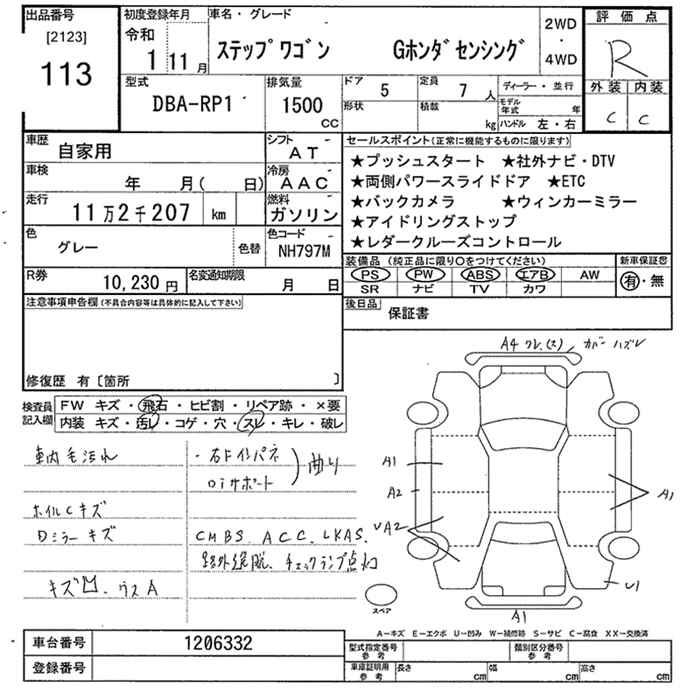 出品番号
[2123]
113
初度登録年月
令和
1 11 月
車名・グレード
ステップワゴン Gホンダセンシング
2WD
・
4WD
評価点
R
外装 内装
C C
型式
DBA-RP1
排気量
1500
cc
ドア
5
形状
定員
7 人
積載
kg
ディーラー・並行
モデル年式 年
ハンドル 左・右
車歴
自家用
シフト
AT
車検
年 月( 日)
冷房
AAC
走行
11万2千207 km
燃料
ガソリン
色
グレー
色替
色コード
NH797M
R券
10,230 円
名変通知期限
月 日
セールスポイント(正常に機能するものに限ります)
★プッシュスタート ★社外ナビ・DTV
★両側パワースライドドア ★ETC
★バックカメラ ★ウィンカーミラー
★アイドリングストップ
★レダークルーズコントロール
装備品(純正品に限り○をつけてください)
新車保証書
PS PW ABS エアB AW
SR ナビ TV カワ
有・無
後日品
保証書
注意事項申告欄(不具合内容等は具体的に記入して下さい)
修復歴 有〔箇所 〕
検査員
記入欄
FW キズ・飛石・ヒビ割・リペア跡・×要
内装 キズ・汚レ・コゲ・穴・スレ・キレ・破レ
車内毛汚れ
ホイルCキズ
ロミラーキズ
・右Fインパネ
ロiサポート
曲り
CMBS. ACC. LKAS.
路外逸脱. チェックランプ点灯
A4 ワレ(大) カバーハズレ
A1
A2
A1
A1
U1
スペア
A－キズ E－エクボ U－凹み W－補修跡 S－サビ C－腐食 XX－交換済
車台番号
1206332
登録番号
型式指定番号
参考
類別区分番号
参考
車庫証明用
参考
長さ cm
幅 cm
高さ cm